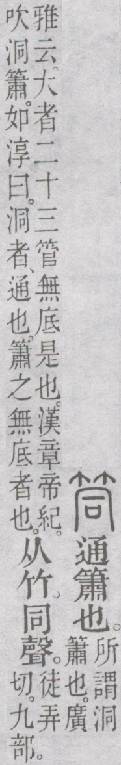 筒
通簫也。
所謂洞
簫也。廣
雅云。大者二十三管無底是也。漢章帝紀。
吹洞簫。如淳曰。洞者、通也。簫之無底者也。
从竹。同聲。
徒弄
切。九部。